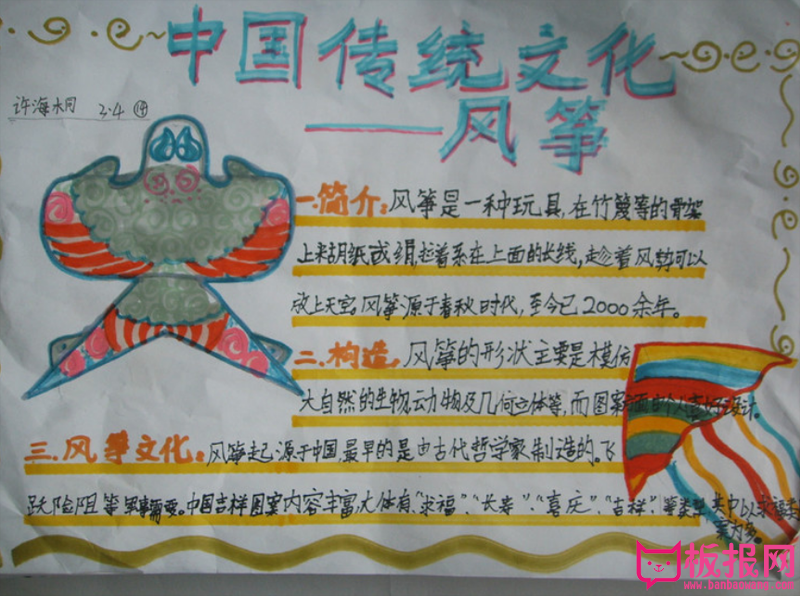 中国传统文化
——风筝
许海 3.4
一.简介:风筝是一种玩具,在竹篾等的骨架
上糊纸或绢,趁着系在上面的长线,趁着风势可以
放上天空。风筝源于春秋时代,至今已2000余年。
二.构造,风筝的形状主要是模仿
大自然的生物,动物及几何立体等,而图案
三.风筝文化:风筝起源于中国,最早的是由古代哲学家制造的。飞
跃险阻等军事需要。中国吉祥图案内容丰富,大体有,“求福”、“长寿”、“喜庆”、“吉祥”,等类型,其中以求福
为多。
板报网
www.banbao